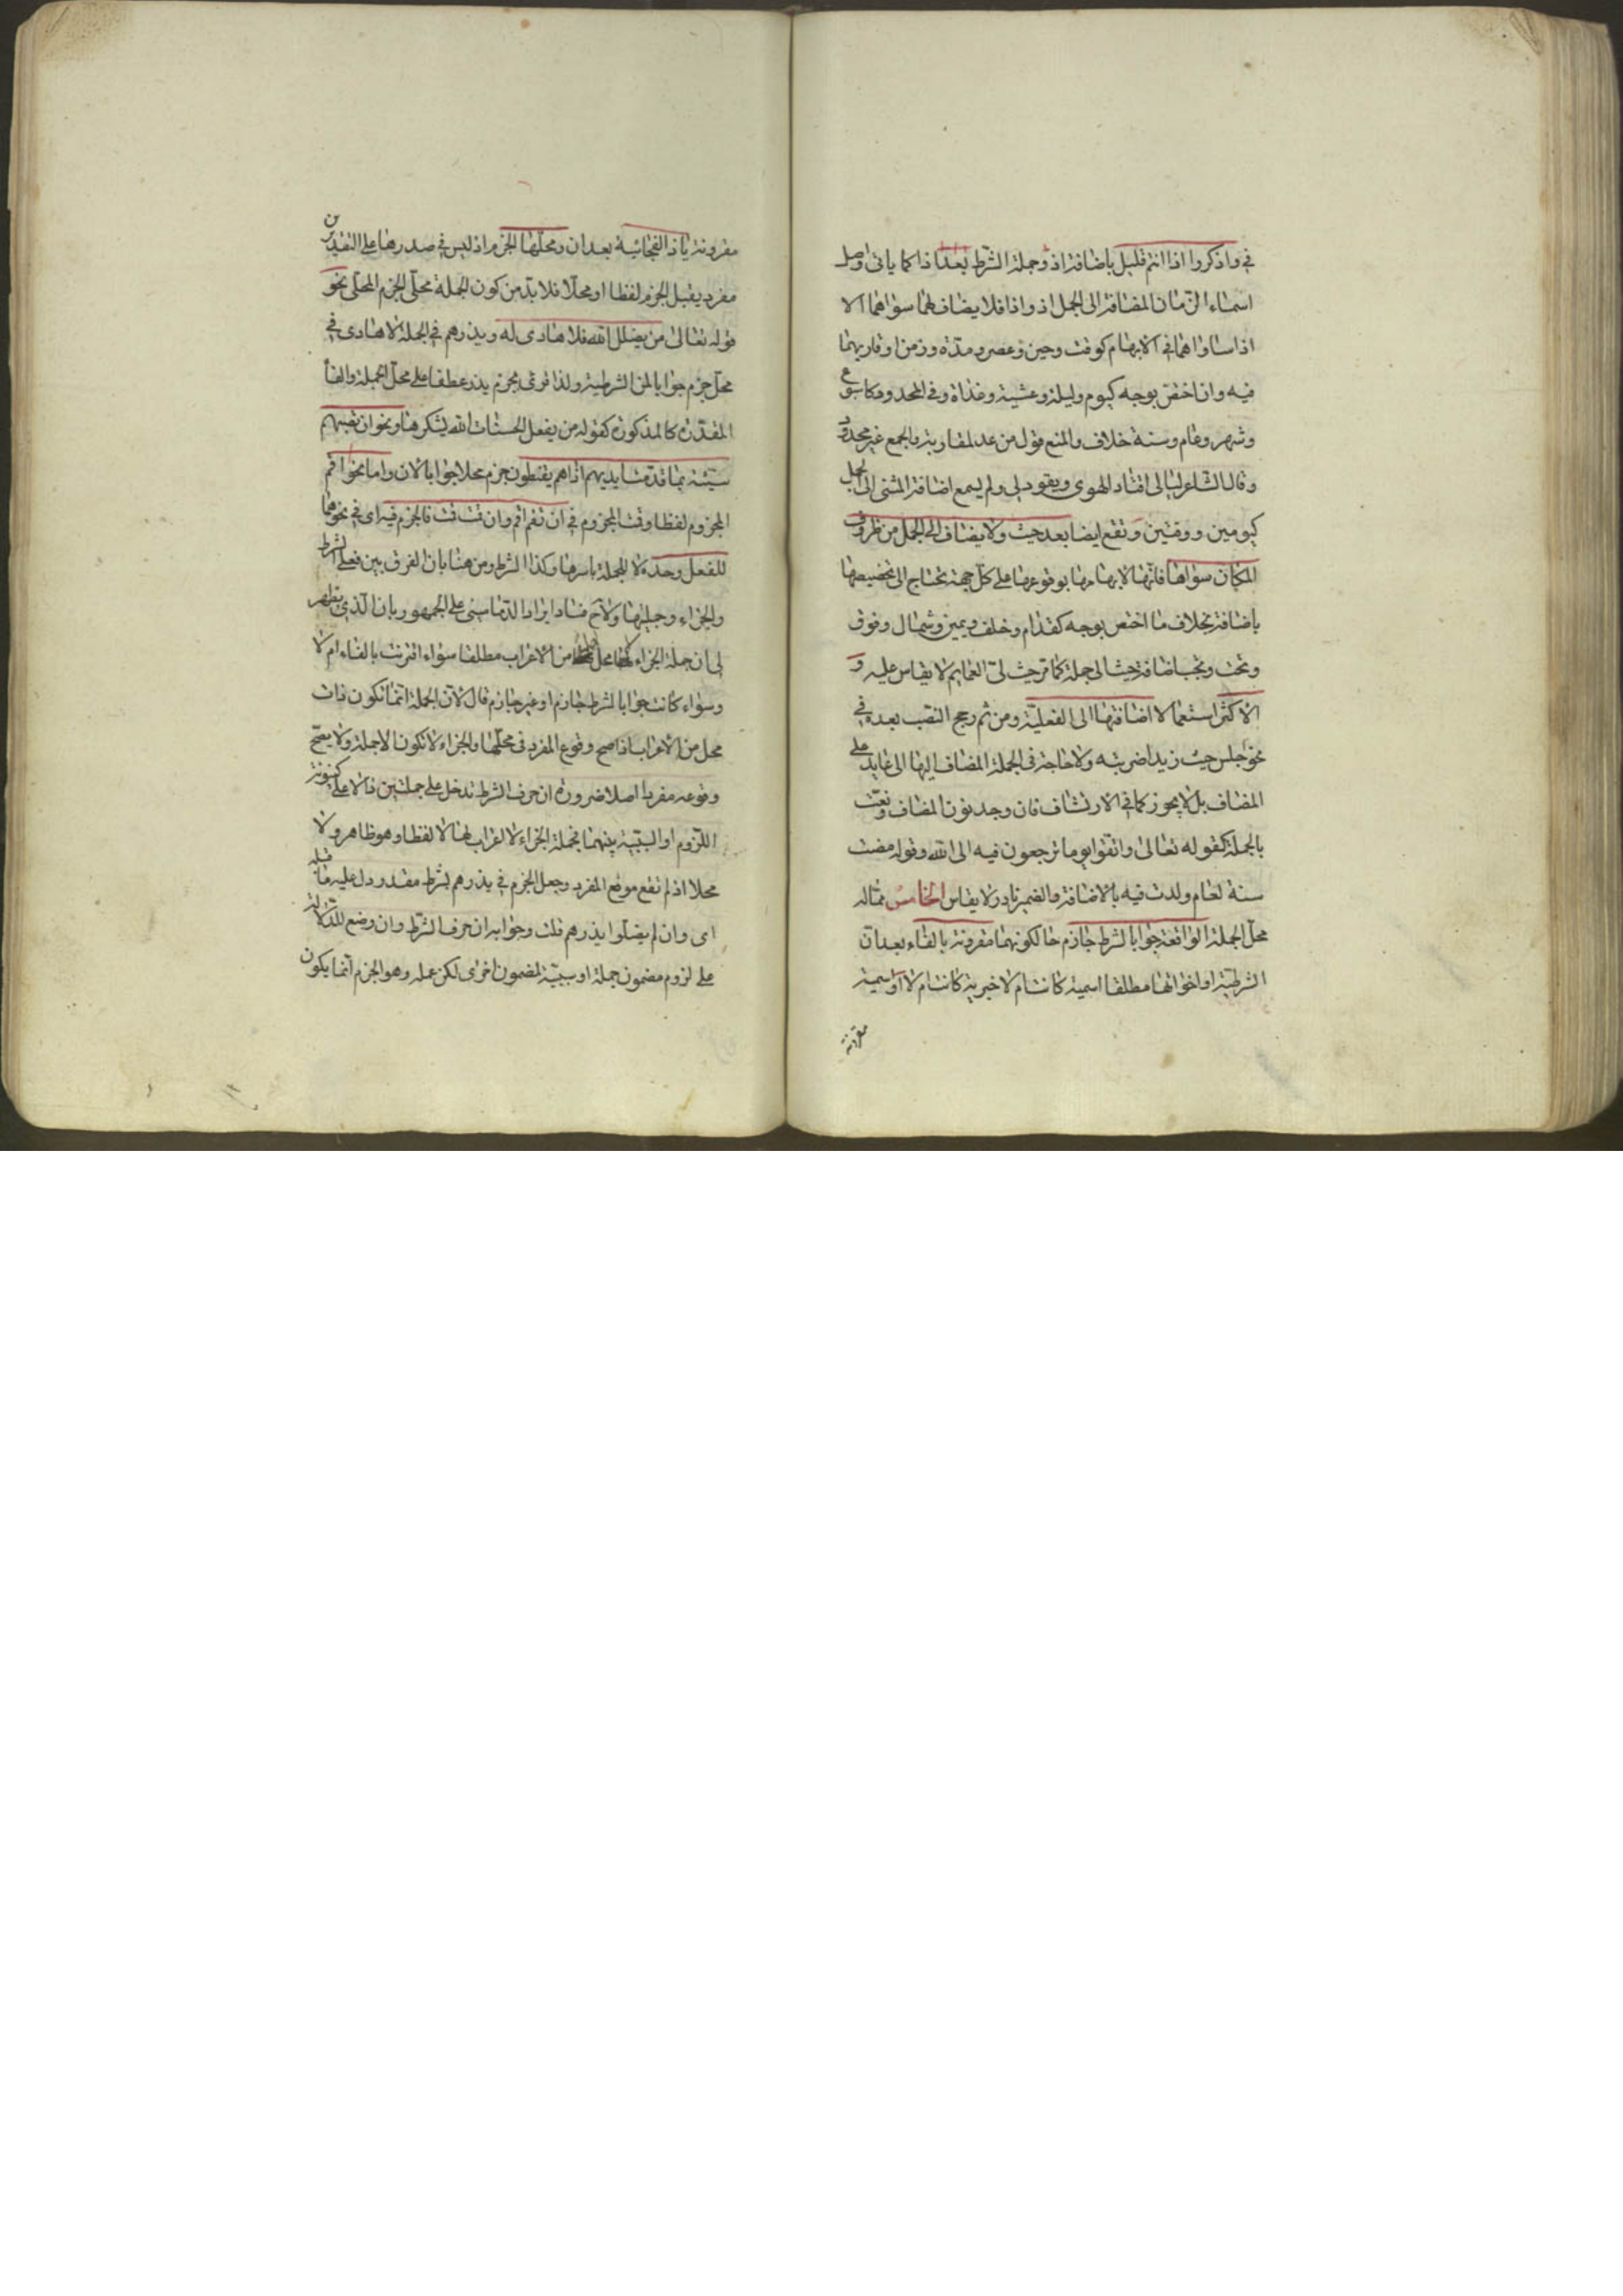 في واذكروا اذا انتم قليل باضافة اذ وجملة الشرط بعد اذا كما ياتي وصل
اسماء الزمان المضافة الى الجمل اذ واذا فلا يضاف لهما سواهما الا
اذا ساواهما في الابهام كوقت وحين وعصر ومدة وزمن او قاربهما
فيه وان اختص بوجه كيوم وليلة وعشية وغداة وفي المحدود كاسبوع
وشهر وعام وسنة خلاف والمنع قول من عد لمقاربته والجمع غير محدود
وقال الشاعر ليالى اقتاد الهوى ويقودلى ولم يسمع اضافة المثنى الى الجمل
كيومين ووقتين وتقع ايضا بعد حيث ولا يضاف الى الجمل من ظروف
المكان سواها فانها لابهامها بوقوعها على كل جهة تحتاج الى تخصيصها
باضافة بخلاف ما اختص بوجه كقدام وخلف ويمين وشمال وفوق
وتحت وتجب اضافة حيث الى جملة كما مر حيث لى العمايم لا يقاس عليه و
الاكثر استعمالا اضافتها الى الفعلية ومن ثم رجح النصب بعده في
نحو جلس حيث زيدا ضربته ولا حاجة فى الجملة المضاف اليها الى عايد على
المضاف بل لا يجوز كما في الارتشاف فان وجد نون المضاف ونعت
بالجملة كقوله تعالى واتقوا يوما ترجعون فيه الى الله وقوله مضت
سنة لعام ولدت فيه بالاضافة فالضمير نادر لا يقاس الخامس مماله
محل الجملة الواقعة جوابا لشرط جازم حالكونهما مقرونة بالفاء بعد ان
الشرطية او اخواتها مطلقا اسمية كانت ام لا خبرية كانت ام لا او اسمية
مقرونة
مقرونة باذا الفجائية بعد ان ومحلها الجزم اذ ليس في صدرها على التقديرين
مفرد يقبل الجزم لفظا او محلا فلا بد من كون الجملة محلى الجزم المحلى نحو
قوله تعالى من يضلل الله فلا هادى له ويذرهم في الجملة لا هادى في
محل جزم جوابا لمن الشرطية ولذا قرئ بجزم يذر عطفا على محل الجملة والفا
المقدرة كالمذكورة كقوله من يفعل الحسنات الله يشكرها ونحو ان تصبهم
سيئة بما قدمت ايديهم اذا هم يقنطون جزم محلا جوابا لان واما نحو اقم
المجزوم لفظا وقت المجزوم في ان تقم اقم وان قمت قمت فالجزم فيه اى في نحوهما
للفعل وحده لا للجملة باسرها وكذا الشرط ومن هنا بان الفرق بين فعلى الشرط
والجزاء وجملتها ولاح فساد ايراد الدماميني على الجمهور بان الذي يظهر
لى ان جملة الجزاء لا محل لها من الاعراب مطلقا سواء اقترنت بالفاء ام لا
وسواء كانت جوابا لشرط جازم او غير جازم قال لان الجملة انما تكون ذات
محل من الاعراب اذا صح وقوع المفرد فى محلها والجزاء لا تكون الا جملة ولا يصح
وقوعه مفردا اصلا ضرورة ان حرف الشرط تدخل على جملتين دالا على كينونة
اللزوم او السببية بينهما فجملة الجزاء لا اعراب لها لا لفظا وهو ظاهر ولا
محلا اذ لم تقع موضع المفرد وجعل الجزم في يذرهم بشرط مقدر دل عليه ما قبله
اى وان لم يضلوا يذرهم قلت وجوابه ان حرف الشرط وان وضع للدلالة
على لزوم مضمون جملة او سببية لمضمون اخرى لكن عمله وهو الجزم انما يكون